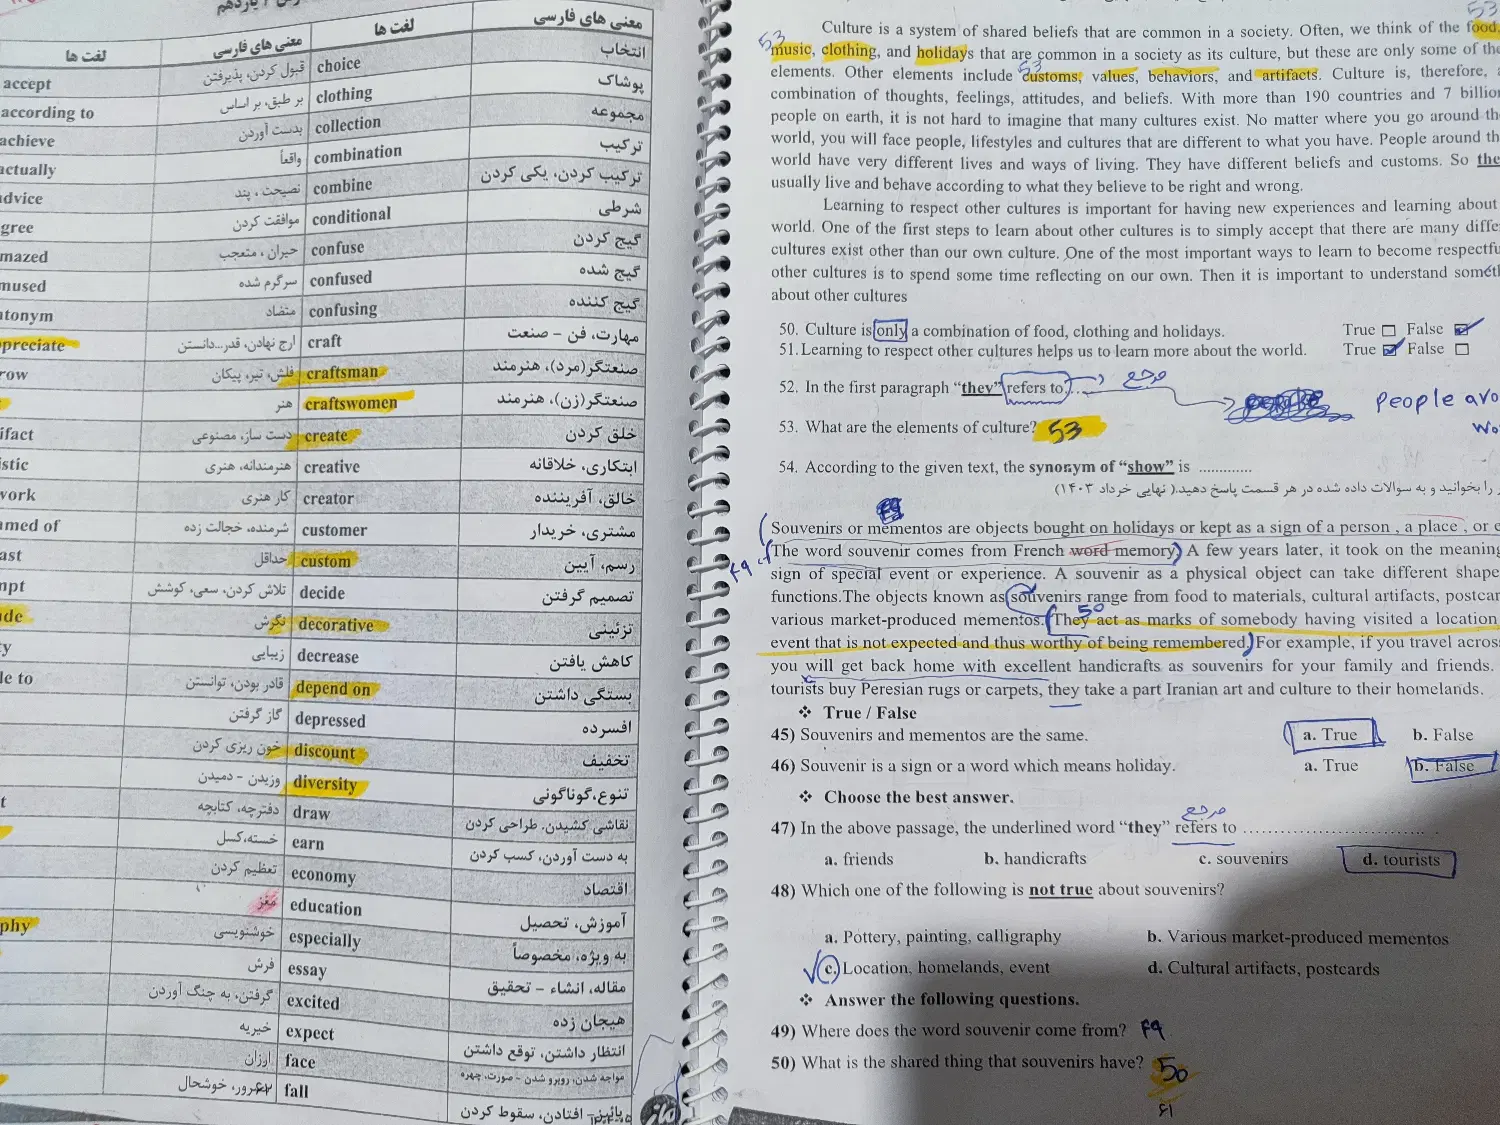 معنی های فارسی
لغت ها
معنی های فارسی
لغت ها
انتخاب
choice
قبول کردن، پذیرفتن
accept
پوشاک
clothing
بر طبق، بر اساس
according to
مجموعه
collection
بدست آوردن
achieve
ترکیب
combination
واقعاً
actually
ترکیب کردن، یکی کردن
combine
نصیحت ، پند
شرطی
conditional
موافقت کردن
gree
گیج کردن
confuse
حیران ، متعجب
mazed
گیج شده
confused
سرگرم شده
mused
گیج کننده
confusing
متضاد
ntonym
مهارت، فن – صنعت
craft
ارج نهادن، قدر...دانستن
preciate
صنعتگر(مرد)، هنرمند
craftsman
فلش، تیر، پیکان
row
صنعتگر(زن)، هنرمند
craftswomen
هنر
خلق کردن
create
دست ساز، مصنوعی
ifact
ابتکاری، خلاقانه
creative
هنرمندانه، هنری
istic
خالق، آفریننده
creator
کار هنری
work
مشتری، خریدار
customer
شرمنده، خجالت زده
amed of
رسم، آیین
custom
حداقل
ast
تصمیم گرفتن
decide
تلاش کردن، سعی، کوشش
mpt
تزئینی
decorative
نگرش
de
کاهش یافتن
decrease
زیبایی
ty
بستگی داشتن
depend on
قادر بودن، توانستن
le to
افسرده
depressed
گاز گرفتن
تخفیف
discount
خون ریزی کردن
تنوع،گوناگونی
diversity
وزیدن – دمیدن
نقاشی کشیدن. طراحی کردن
draw
دفترچه، کتابچه
t
به دست آوردن، کسب کردن
earn
خسته،کسل
اقتصاد
economy
تعظیم کردن
آموزش، تحصیل
education
مغز
به ویژه، مخصوصاً
especially
خوشنویسی
phy
مقاله، انشاء – تحقیق
essay
فرش
هیجان زده
excited
گرفتن، به چنگ آوردن
انتظار داشتن، توقع داشتن
expect
خیریه
مواجه شدن، روبرو شدن – صورت، چهره
face
ارزان
پائیز– افتادن، سقوط کردن
fall
خوشحال
53
Culture is a system of shared beliefs that are common in a society. Often, we think of the food,
53
music, clothing, and holidays that are common in a society as its culture, but these are only some of the
53
elements. Other elements include customs, values, behaviors, and artifacts. Culture is, therefore, a
combination of thoughts, feelings, attitudes, and beliefs. With more than 190 countries and 7 billion
people on earth, it is not hard to imagine that many cultures exist. No matter where you go around th
world, you will face people, lifestyles and cultures that are different to what you have. People around th
world have very different lives and ways of living. They have different beliefs and customs. So the
usually live and behave according to what they believe to be right and wrong.
Learning to respect other cultures is important for having new experiences and learning about
world. One of the first steps to learn about other cultures is to simply accept that there are many diffe
cultures exist other than our own culture. One of the most important ways to learn to become respectfu
other cultures is to spend some time reflecting on our own. Then it is important to understand someth
about other cultures
50. Culture is only a combination of food, clothing and holidays. True □ False ☑
51. Learning to respect other cultures helps us to learn more about the world. True ☑ False □
مرجع
52. In the first paragraph “they” refers to .....
People aro
wo
53. What are the elements of culture? 53
54. According to the given text, the synonym of “show” is .............
را بخوانید و به سوالات داده شده در هر قسمت پاسخ دهید.( نهایی خرداد ۱۴۰۳)
Souvenirs or mementos are objects bought on holidays or kept as a sign of a person , a place , or e
۴۹
The word souvenir comes from French word memory. A few years later, it took on the meaning
sign of special event or experience. A souvenir as a physical object can take different shape
functions.The objects known as souvenirs range from food to materials, cultural artifacts, postcar
50
various market-produced mementos. They act as marks of somebody having visited a location
event that is not expected and thus worthy of being remembered. For example, if you travel acros
you will get back home with excellent handicrafts as souvenirs for your family and friends.
tourists buy Peresian rugs or carpets, they take a part Iranian art and culture to their homelands.
❖ True / False
45) Souvenirs and mementos are the same. a. True b. False
46) Souvenir is a sign or a word which means holiday. a. True b. False
❖ Choose the best answer.
مرجع
47) In the above passage, the underlined word “they” refers to .............................
a. friends b. handicrafts c. souvenirs d. tourists
48) Which one of the following is not true about souvenirs?
a. Pottery, painting, calligraphy b. Various market-produced mementos
c. Location, homelands, event d. Cultural artifacts, postcards
❖ Answer the following questions.
49) Where does the word souvenir come from? ۴۹
50) What is the shared thing that souvenirs have? 50
۶۱